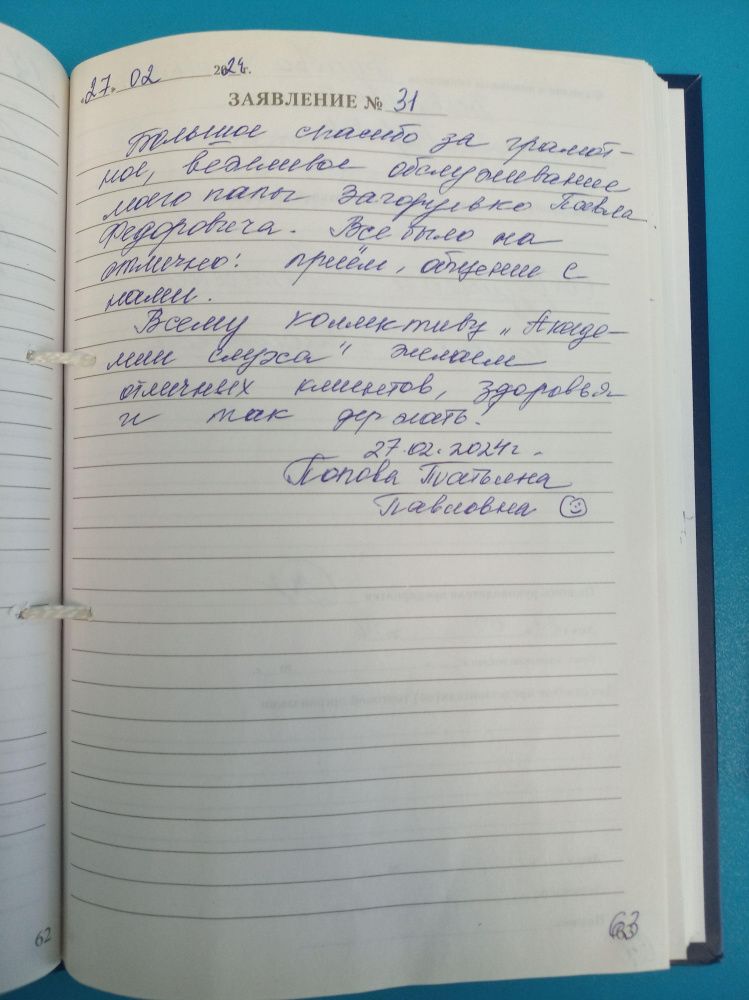 «27» 02 2024г.
ЗАЯВЛЕНИЕ № 31
Большое спасибо за грамот-
ное, вежливое обслуживание
моего папы Загорулько Павла
Федоровича. Все было на
отлично: приём, общение с
нами.
Всему коллективу „Акаде-
мии слуха" желаем
отличных клиентов, здоровья
и так держать!
27.02.2024г.
Попова Татьяна
Павловна
62
63